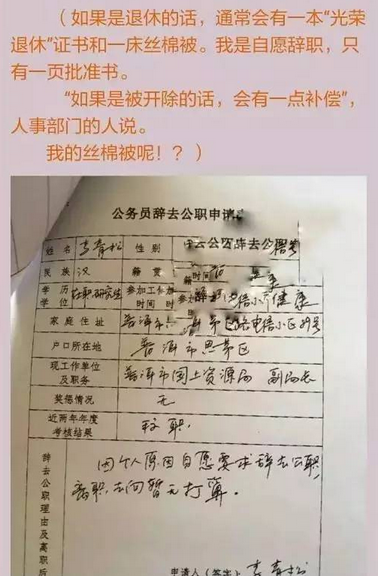 （如果是退休的话，通常会有一本“光荣
退休”证书和一床丝棉被。我是自愿辞职，只
有一页批准书。
“如果是被开除的话，会有一点补偿”，
人事部门的人说。
我的丝棉被呢！？）
公务员辞去公职申请
姓名 李青松 性别
民族 汉 籍贯
学历 在职研究生 参加工作 健康
学位 时间
家庭住址 普洱市 小区
户口所在地 普洱市思茅区
现工作单位 普洱市国土资源局 副局长
及职务
奖惩情况 无
近两年年度 称职.
考核结果
辞去公职理由及离职后
因个人原因自愿要求辞去公职,
离职去向暂无打算.
申请人（签字） 李青松